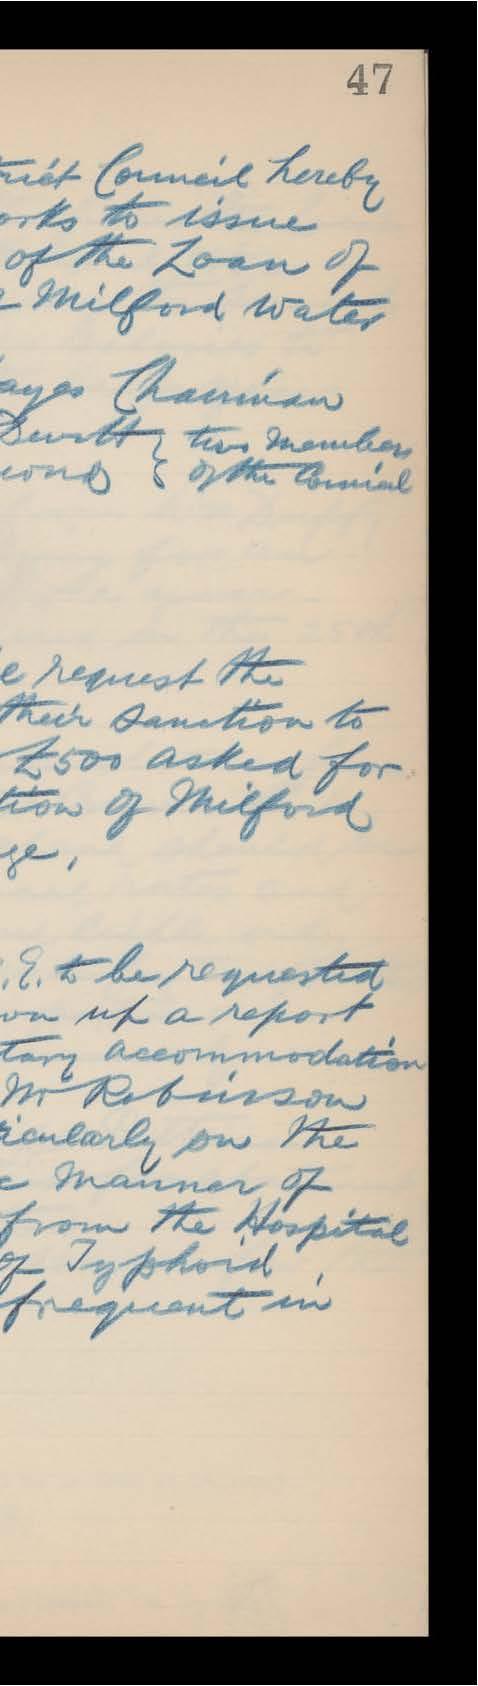 47
trict Council hereby
orks to issue
of the Loan of
Milford Water
ayes Chairman
Devitt } two Members
mond } of the Council
e request the
their sanction to
£500 asked for
tion of Milford
ge,
.E. to be requested
wn up a report
tary accommodation
Mr Robinson
icularly on the
c manner of
from the Hospital
of Typhoid
frequent in